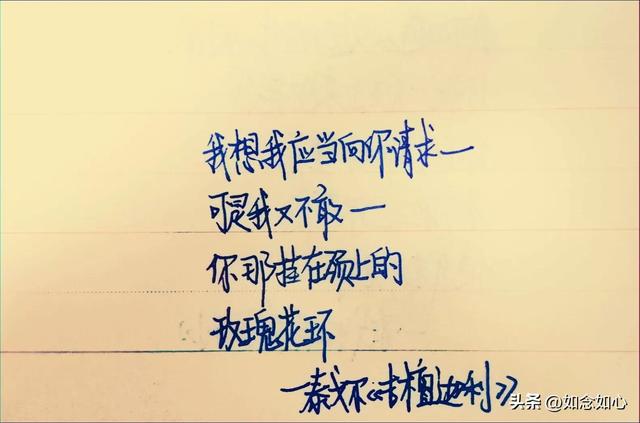 我想我应当向你请求一
可是我又不敢一
你那挂在颈上的
玫瑰花环
一泰戈尔《吉檀迦利》
头条 @如念如心